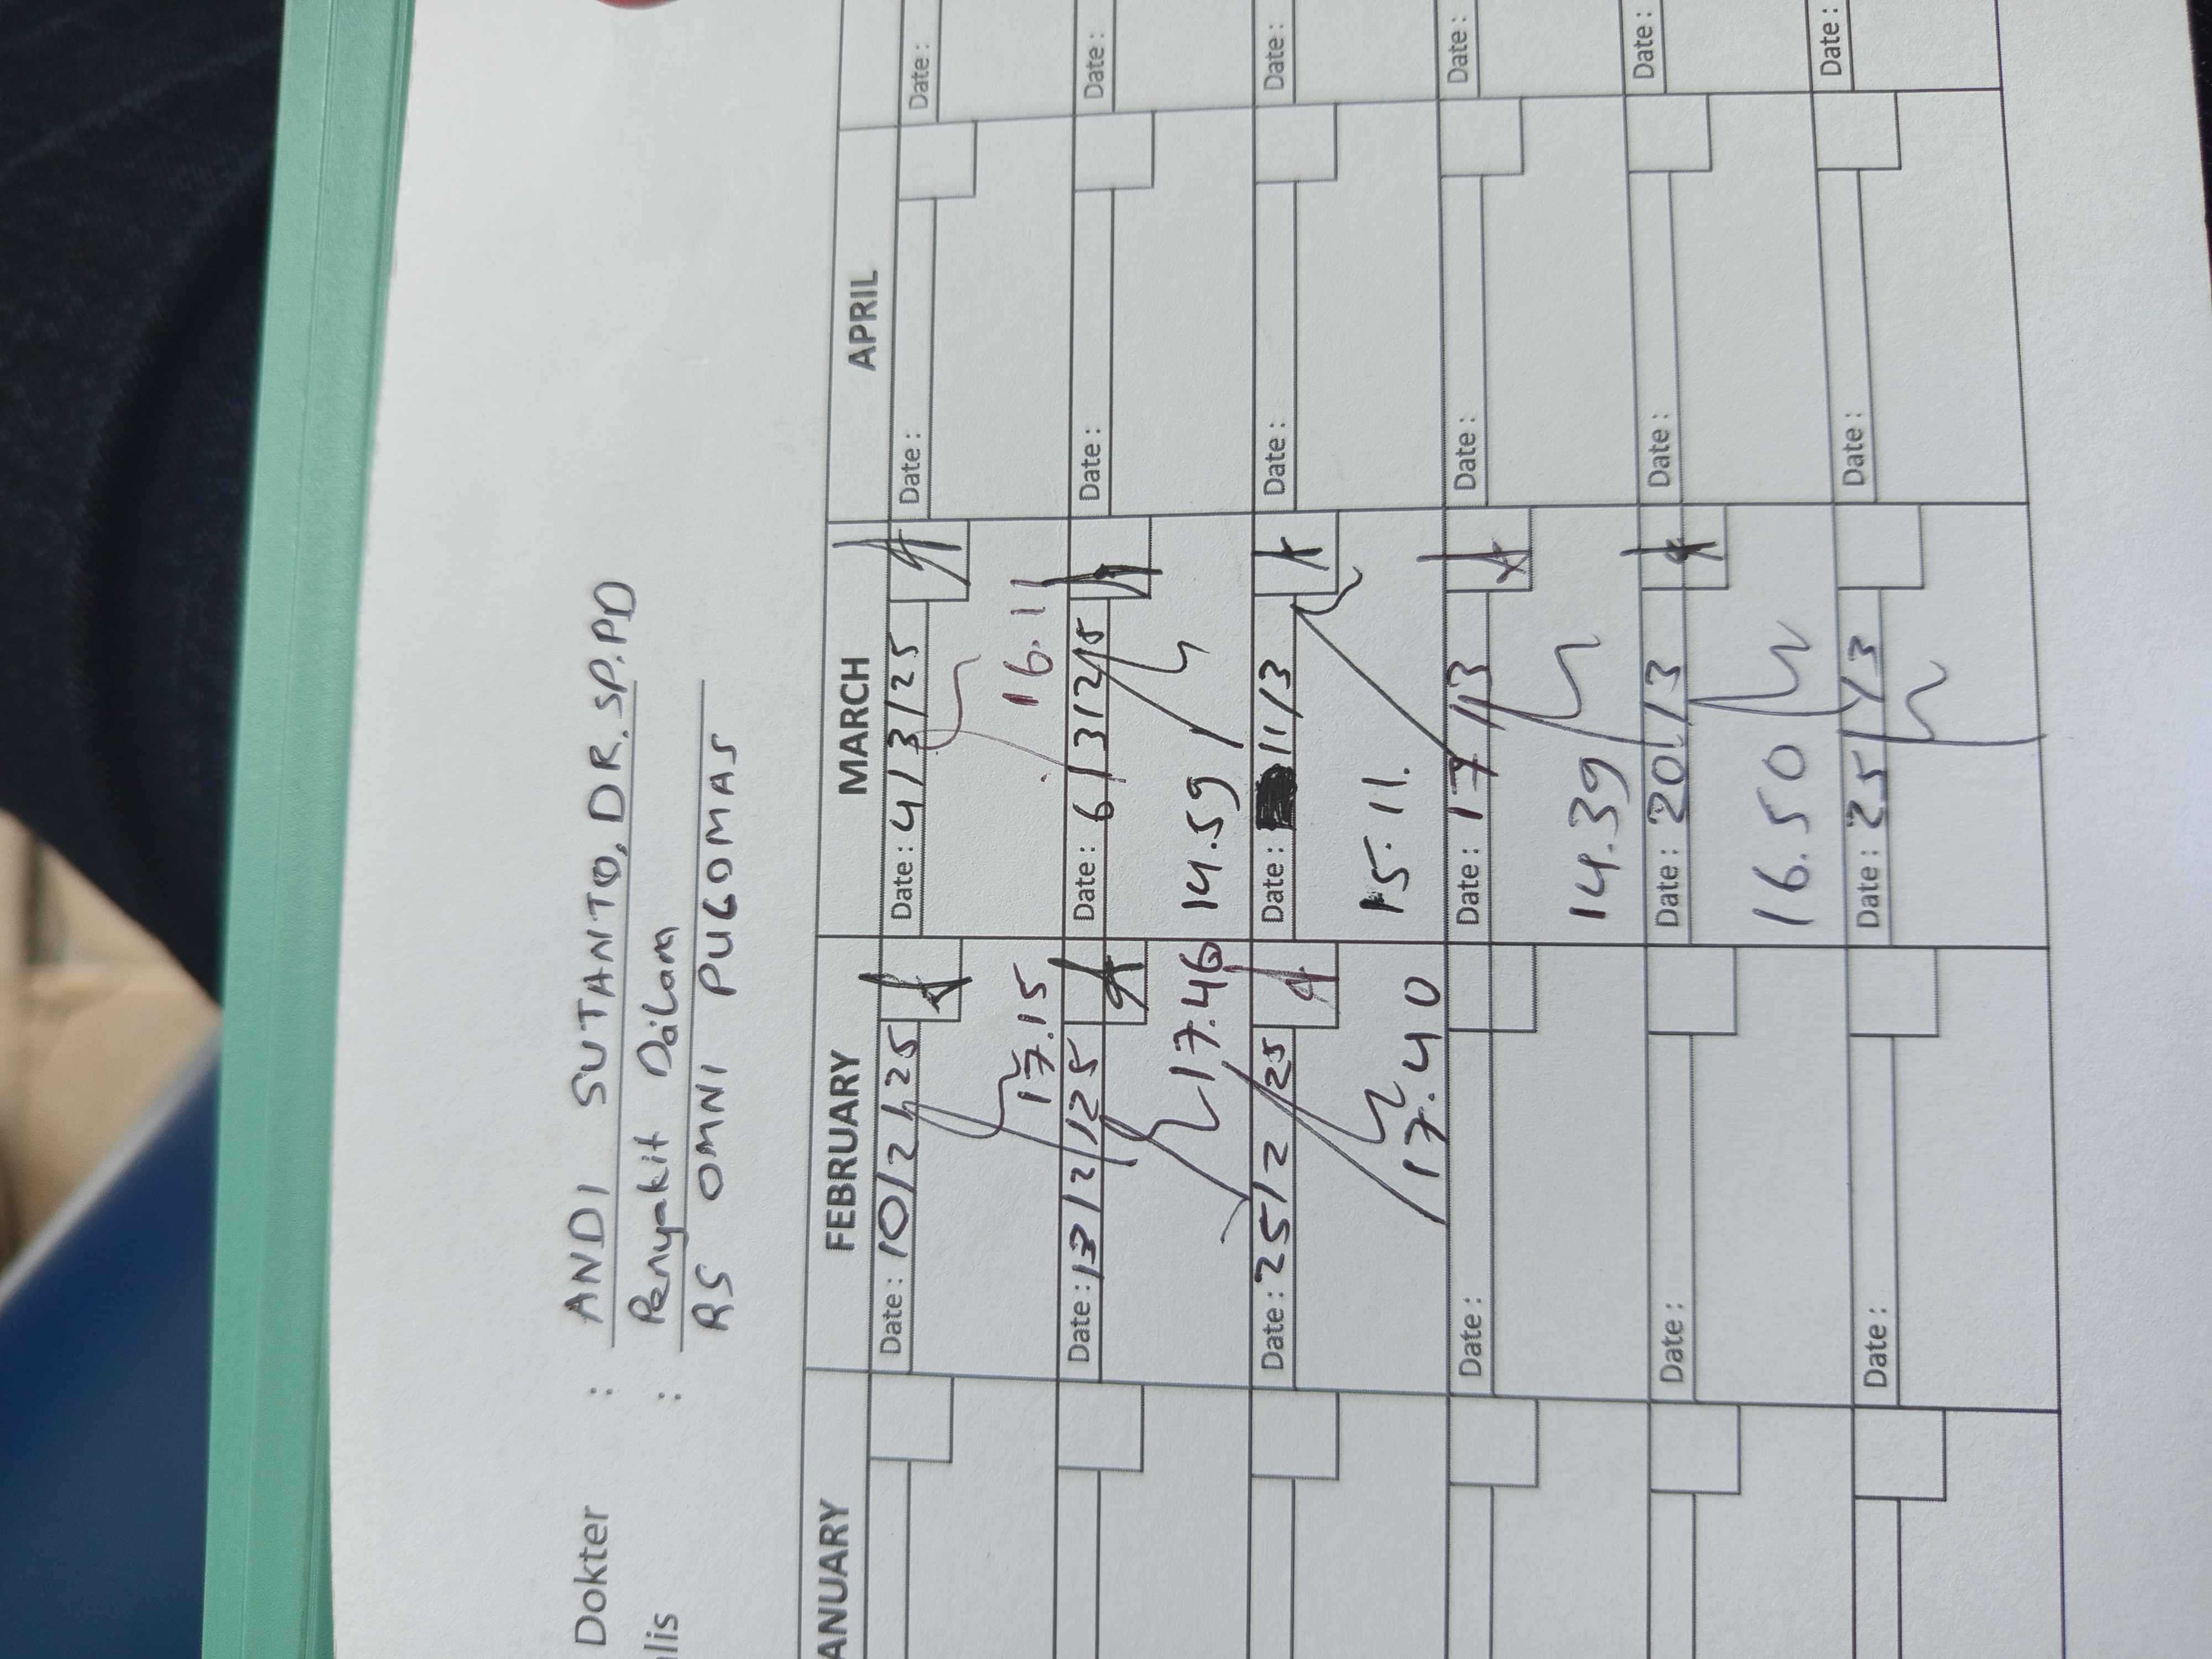 Dokter : ANDI SUTANTO, DR. SP.PD
alis : Penyakit Dalam
RS OMNI PULOMAS
ANUARY FEBRUARY MARCH APRIL
Date : 10/2/25 Date : 4/3/25 Date : Date :
17.15 16.11
Date : 13/2/25 Date : 6/3/25 Date : Date :
17.46 14.59
Date : 25/2 25 Date : 11/3 Date : Date :
17.40 15.11.
Date : Date : 17/3 Date : Date :
14.39
Date : Date : 20/3 Date : Date :
16.50
Date : Date : 25/3 Date : Date :